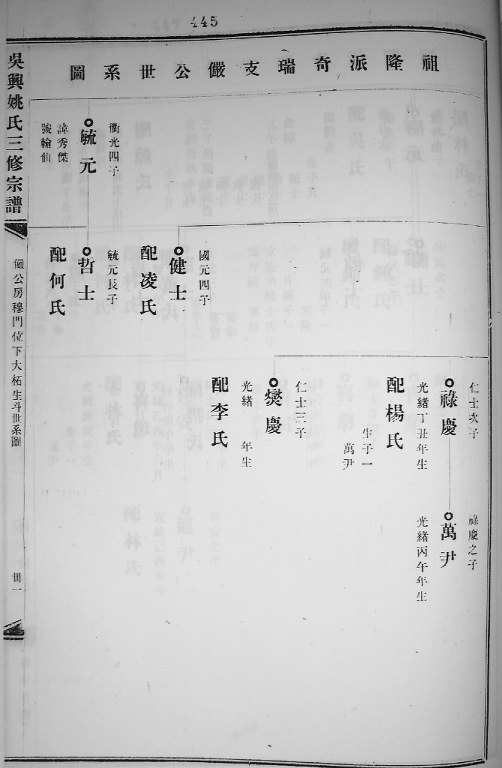 445
祖隆派奇瑞支儼公世系圖
仁士次子
祿慶
光緒丁丑年生
配楊氏
生子一
萬尹
祿慶之子
萬尹
光緒丙午年生
仁士三子
爕慶
光緒 年生
配李氏
國元四子
健士
配凌氏
衡光四子
毓元
諱秀傑
號翰仙
毓元長子
哲士
配何氏
吳興姚氏三修宗譜
儼公房穆門位下大柘生斗世系圖